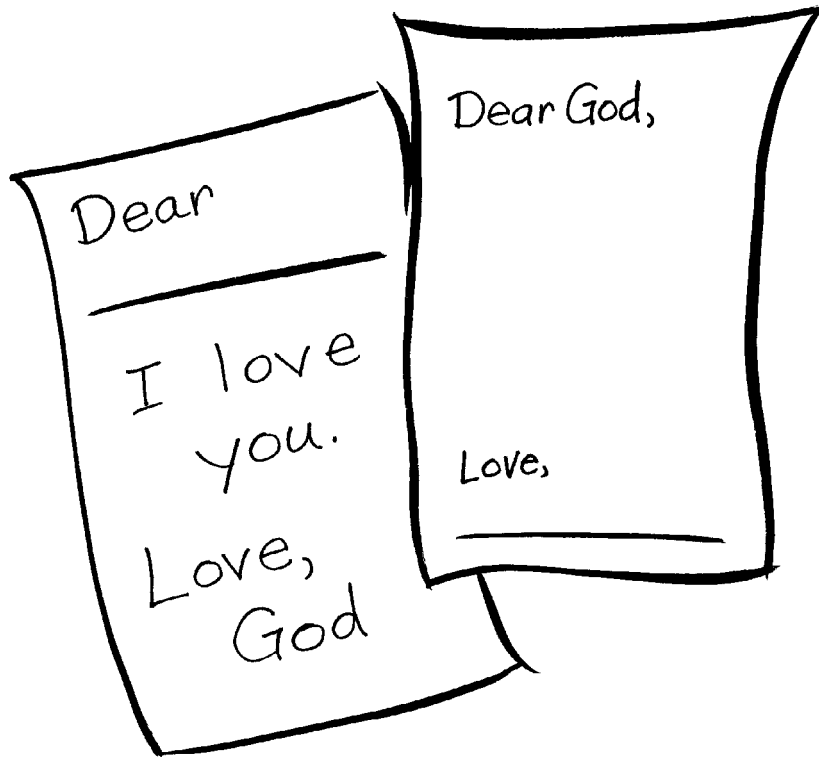 Dear
I love
you.
Love,
God
Dear God,
Love,